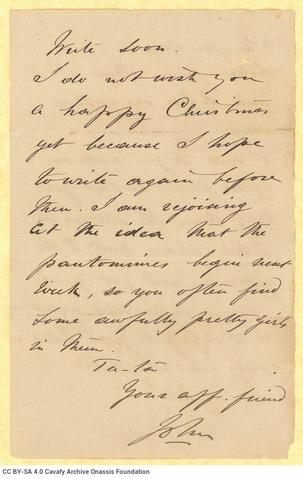 Write soon.
I do not wish you
a happy Christmas
yet because I hope
to write again before
then. I am rejoicing
at the idea that the
pantomimes begin next
week, so you often find
some awfully pretty girls
in them.
Ta-ta.
Your aff. friend
John
CC BY-SA 4.0 Cavafy Archive Onassis Foundation